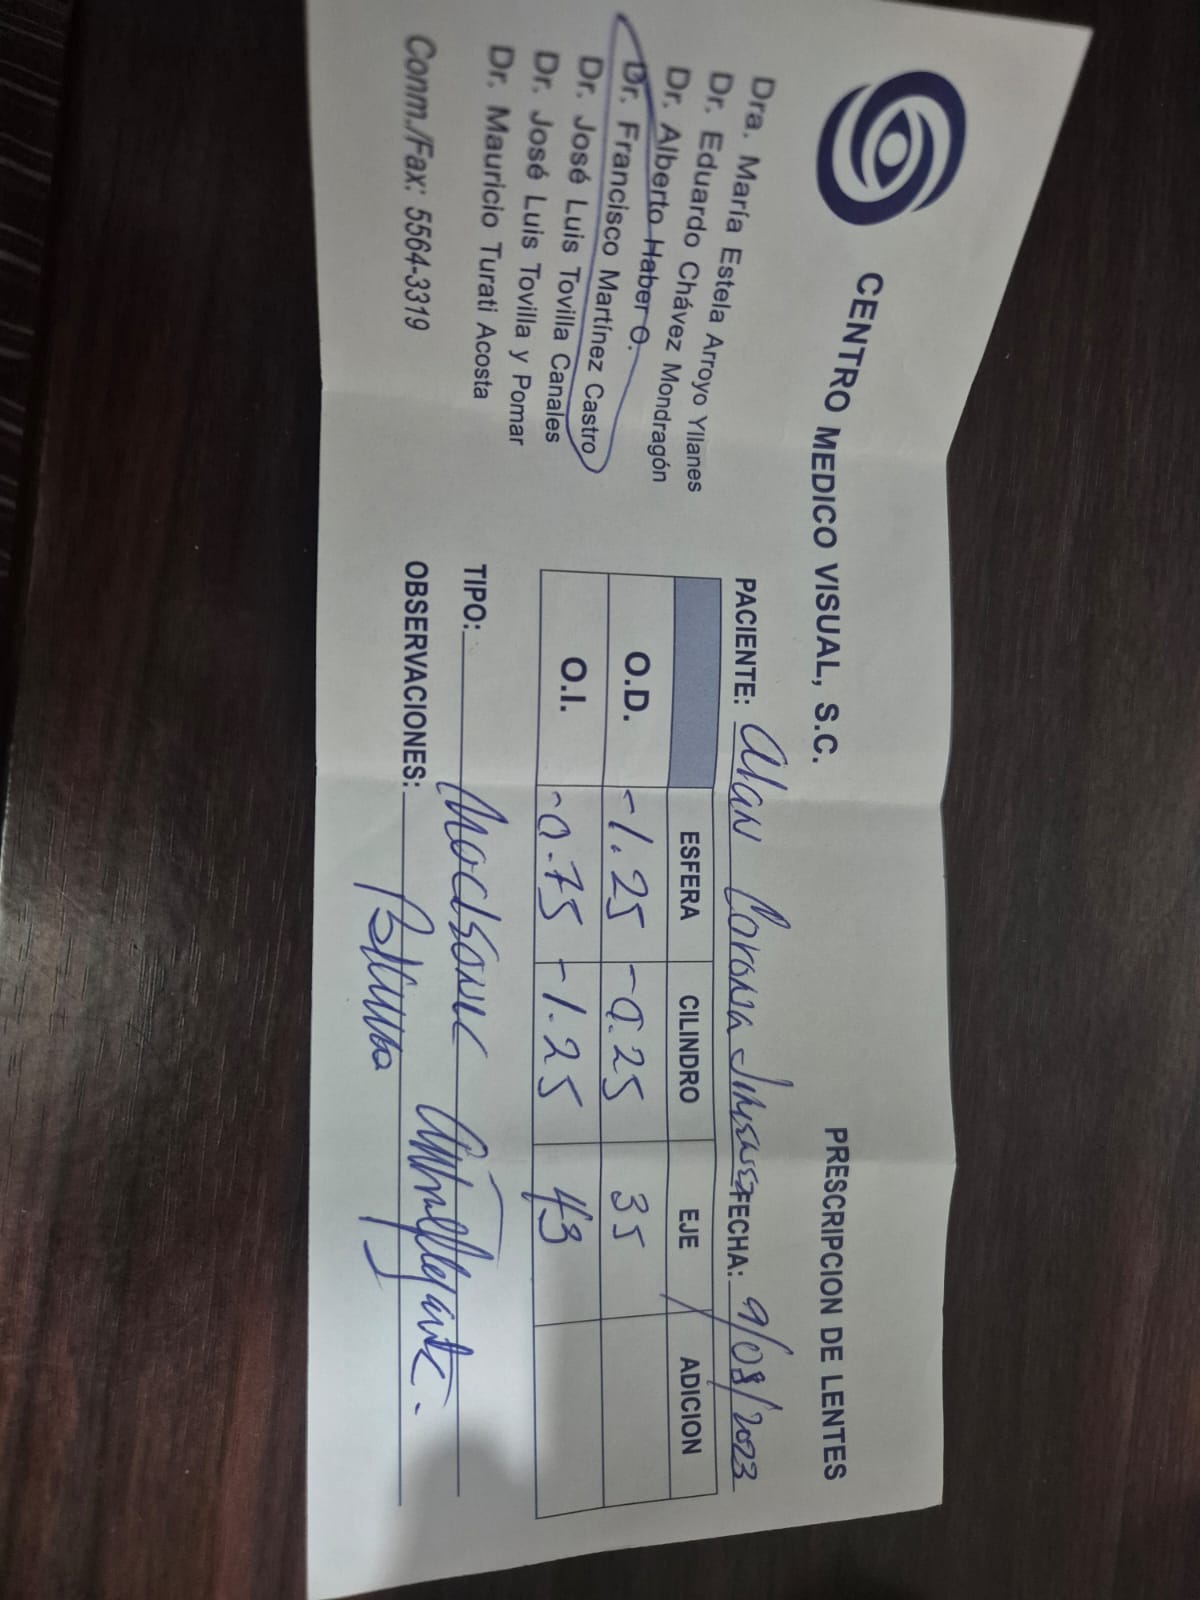 CENTRO MEDICO VISUAL, S.C.
PRESCRIPCION DE LENTES
Dra. María Estela Arroyo Yllanes
Dr. Eduardo Chávez Mondragón
Dr. Alberto Haber O.
Dr. Francisco Martínez Castro
Dr. José Luis Tovilla Canales
Dr. José Luis Tovilla y Pomar
Dr. Mauricio Turati Acosta
Conm./Fax: 5564-3319
PACIENTE: Alan Corona Jimenez FECHA: 9/08/2023
ESFERA CILINDRO EJE ADICION
O.D. -1.25 -0.25 35
O.I. -0.75 -1.25 43
TIPO:
OBSERVACIONES: